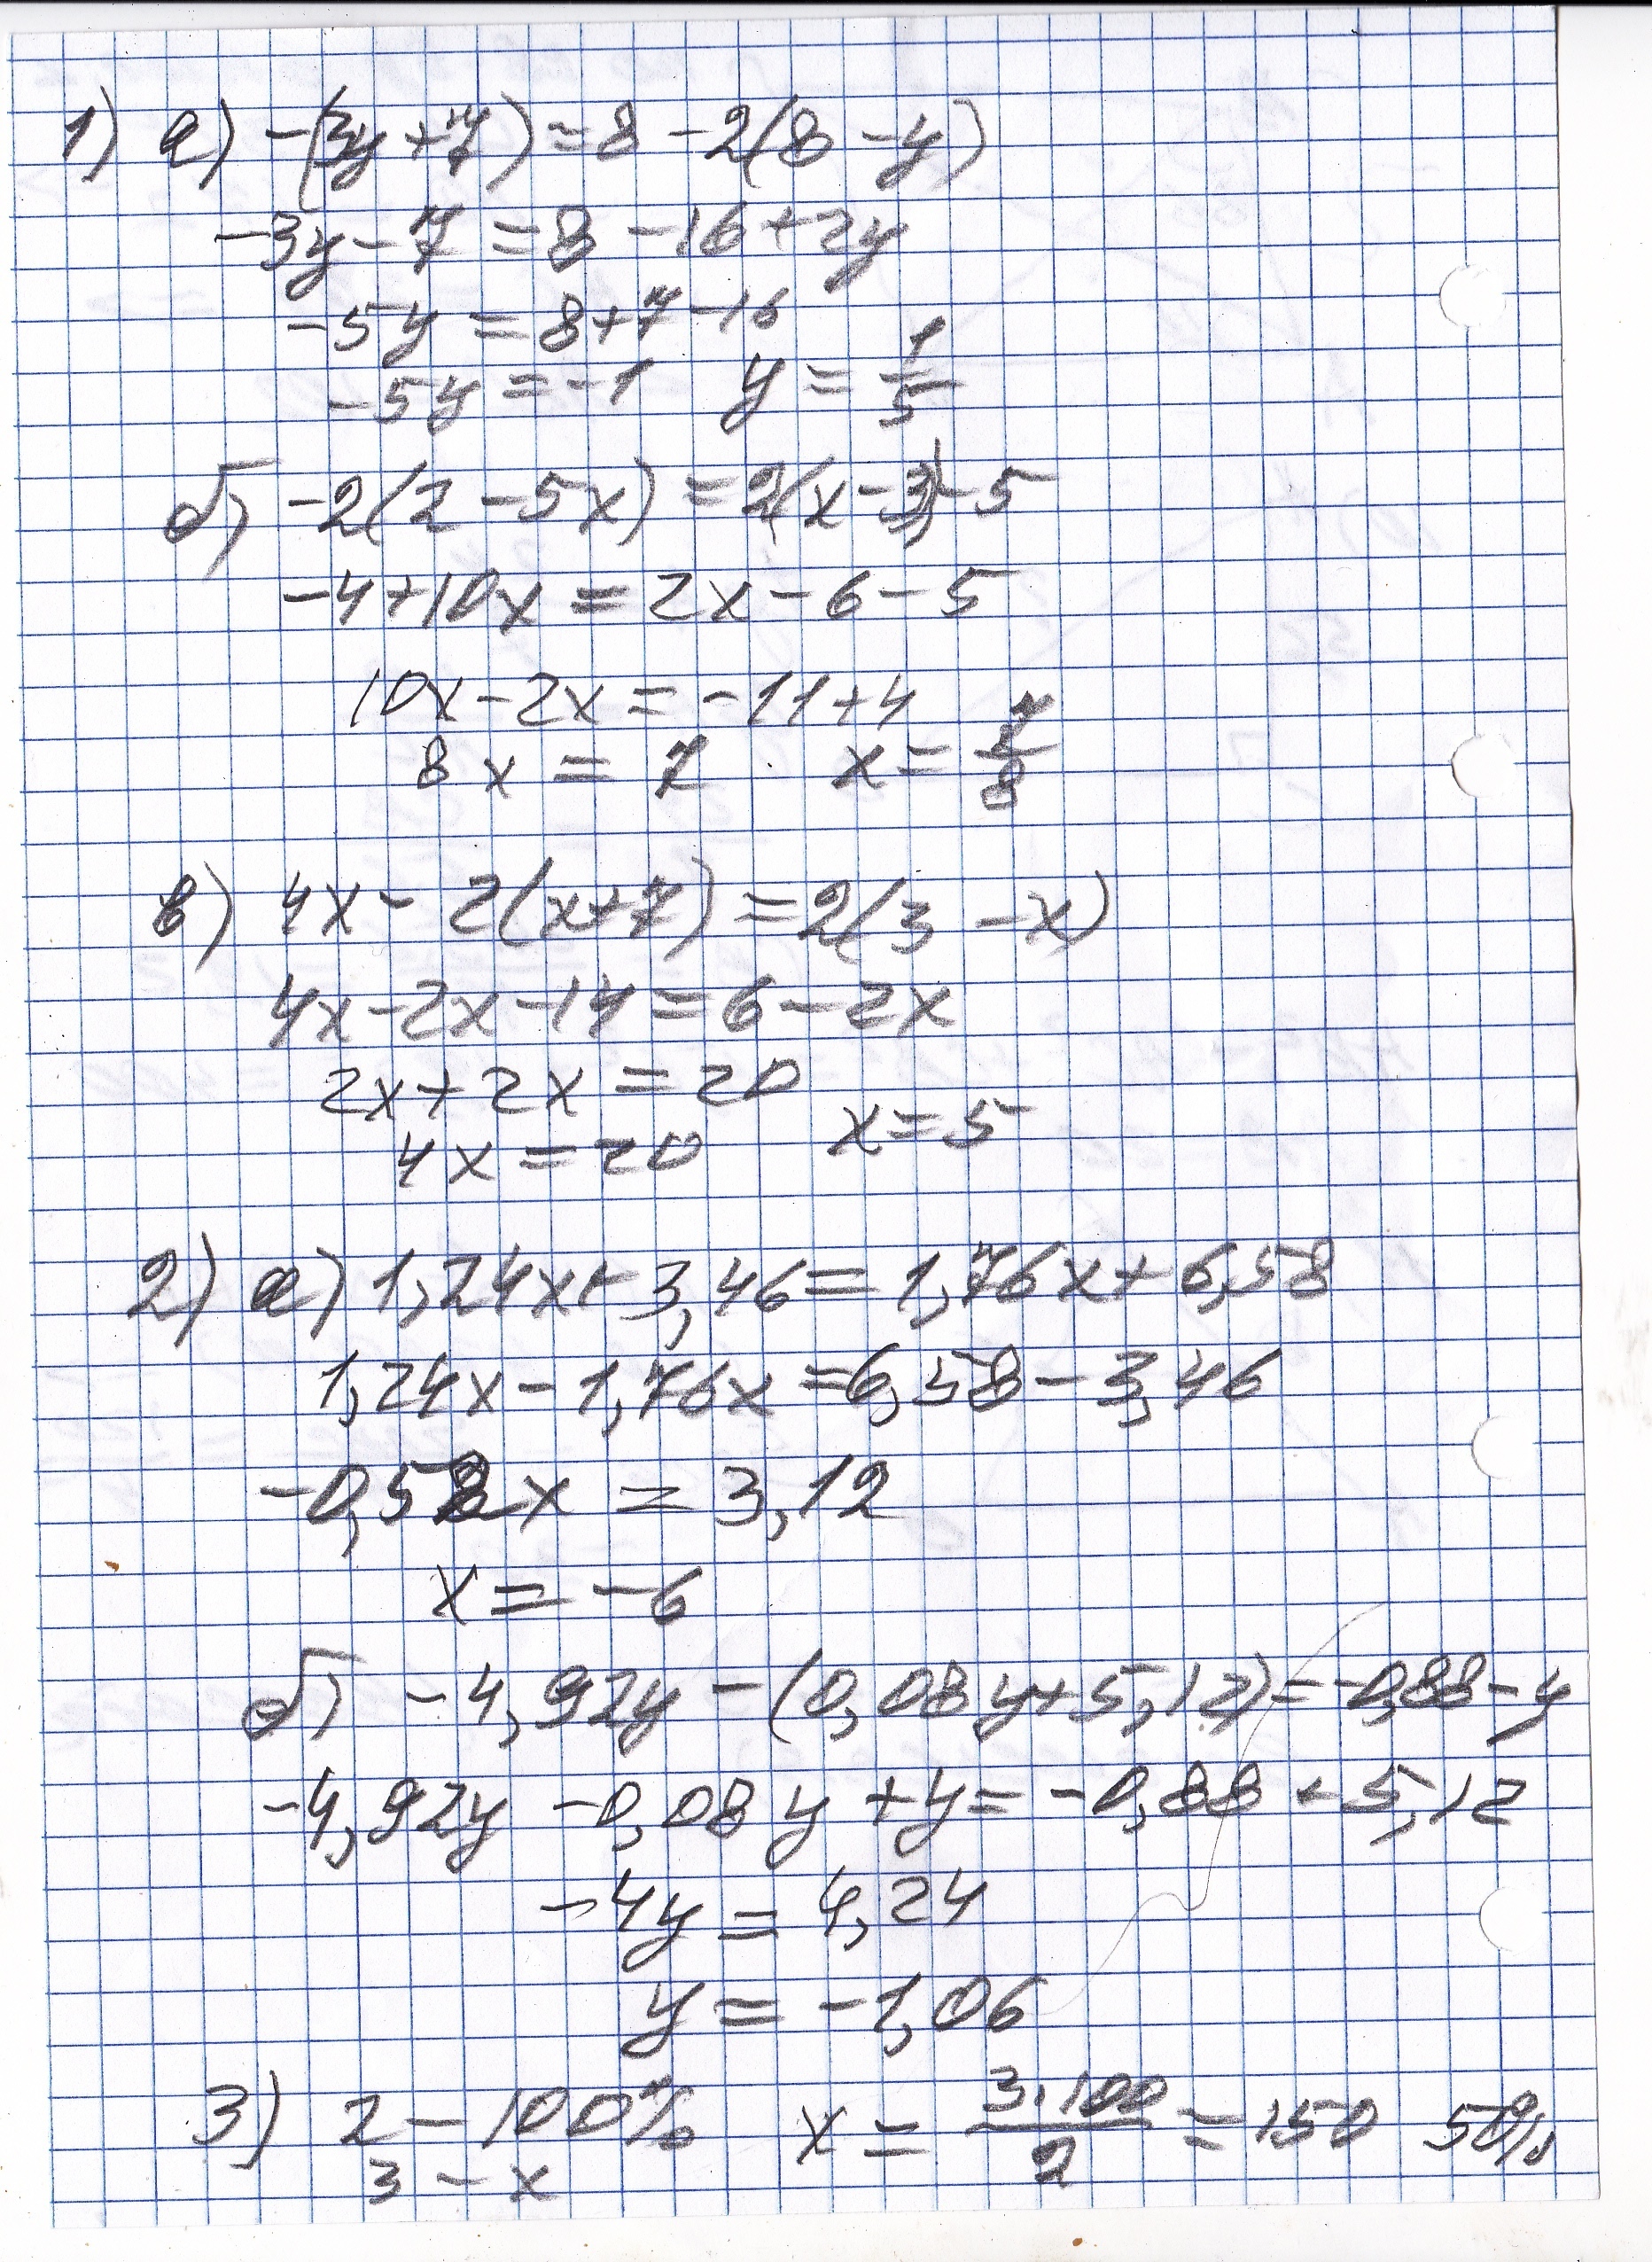 1) а) -(3y+7)=8-2(8-y)
-3y-7=8-16+2y
-5y=8+7-16
-5y=-1 y=1/5
б) -2(2-5x)=2(x-3)-5
-4+10x=2x-6-5
10x-2x=-11+4
8x=7 x=7/8
в) 4x-2(x+7)=2(3-x)
4x-2x-14=6-2x
2x+2x=20
4x=20 x=5
2) а) 1,24x+3,46=1,76x+6,58
1,24x-1,76x=6,58-3,46
-0,52x=3,12
x=-6
б) -4,92y-(0,08y+5,12)=-0,88-y
-4,92y-0,08y+y=-0,88+5,12
-4y=4,24
y=-1,06
3) 2-100% x=3·100/2=150 50%
3-x